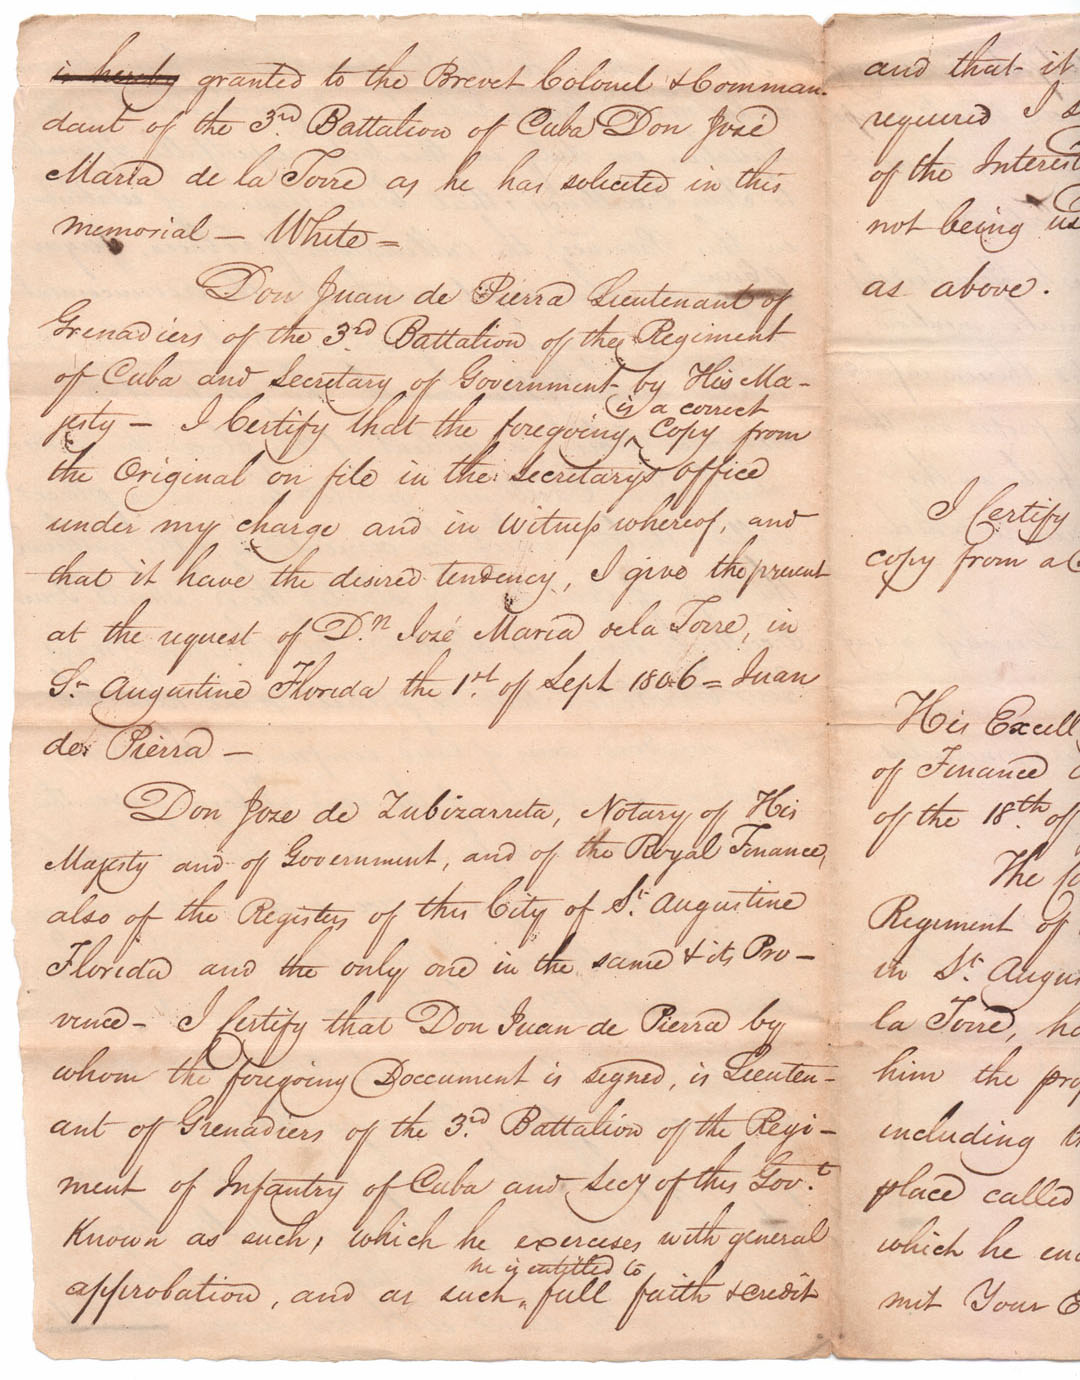 is hereby granted to the Brevet Colonel & Comman-
dant of the 3rd Battalion of Cuba Don José
Maria de la Torre as he has solicited in this
memorial — White =
Don Juan de Pierra Lieutenant of
Grenadiers of the 3rd Battalion of the Regiment
of Cuba and Secretary of Government by His Ma-
is a correct
jesty — I Certify that the foregoing ^ Copy from
the Original on file in the secretary's office
under my charge and in Witness whereof, and
that it have the desired tendency, I give the present
at the request of Dn José Maria de la Torre, in
St Augustine Florida the 1st of Sept 1806 = Juan
de Pierra —
Don Joze de Zubizarreta, Notary of His
Majesty and of Government, and of the Royal Finance,
also of the Registers of this City of St. Augustine
Florida and the only one in the same & its Pro-
vince - I Certify that Don Juan de Pierra by
whom the foregoing Doccument is signed, is Lieuten-
ant of Grenadiers of the 3rd Battalion of the Regi-
ment of Infantry of Cuba and Secy of this Govt
Known as such, which he exercises with general
he is entitled to
approbation, and as such ^ full faith & credit
and that it
required I
of the Interest
not being
as above.
I Certify
copy from a
His Excell
of Finance
of the 18th of
The
Regiment of
in St. Augus
la Torre, ha
him the prop
including
place called
which he
mit Your E